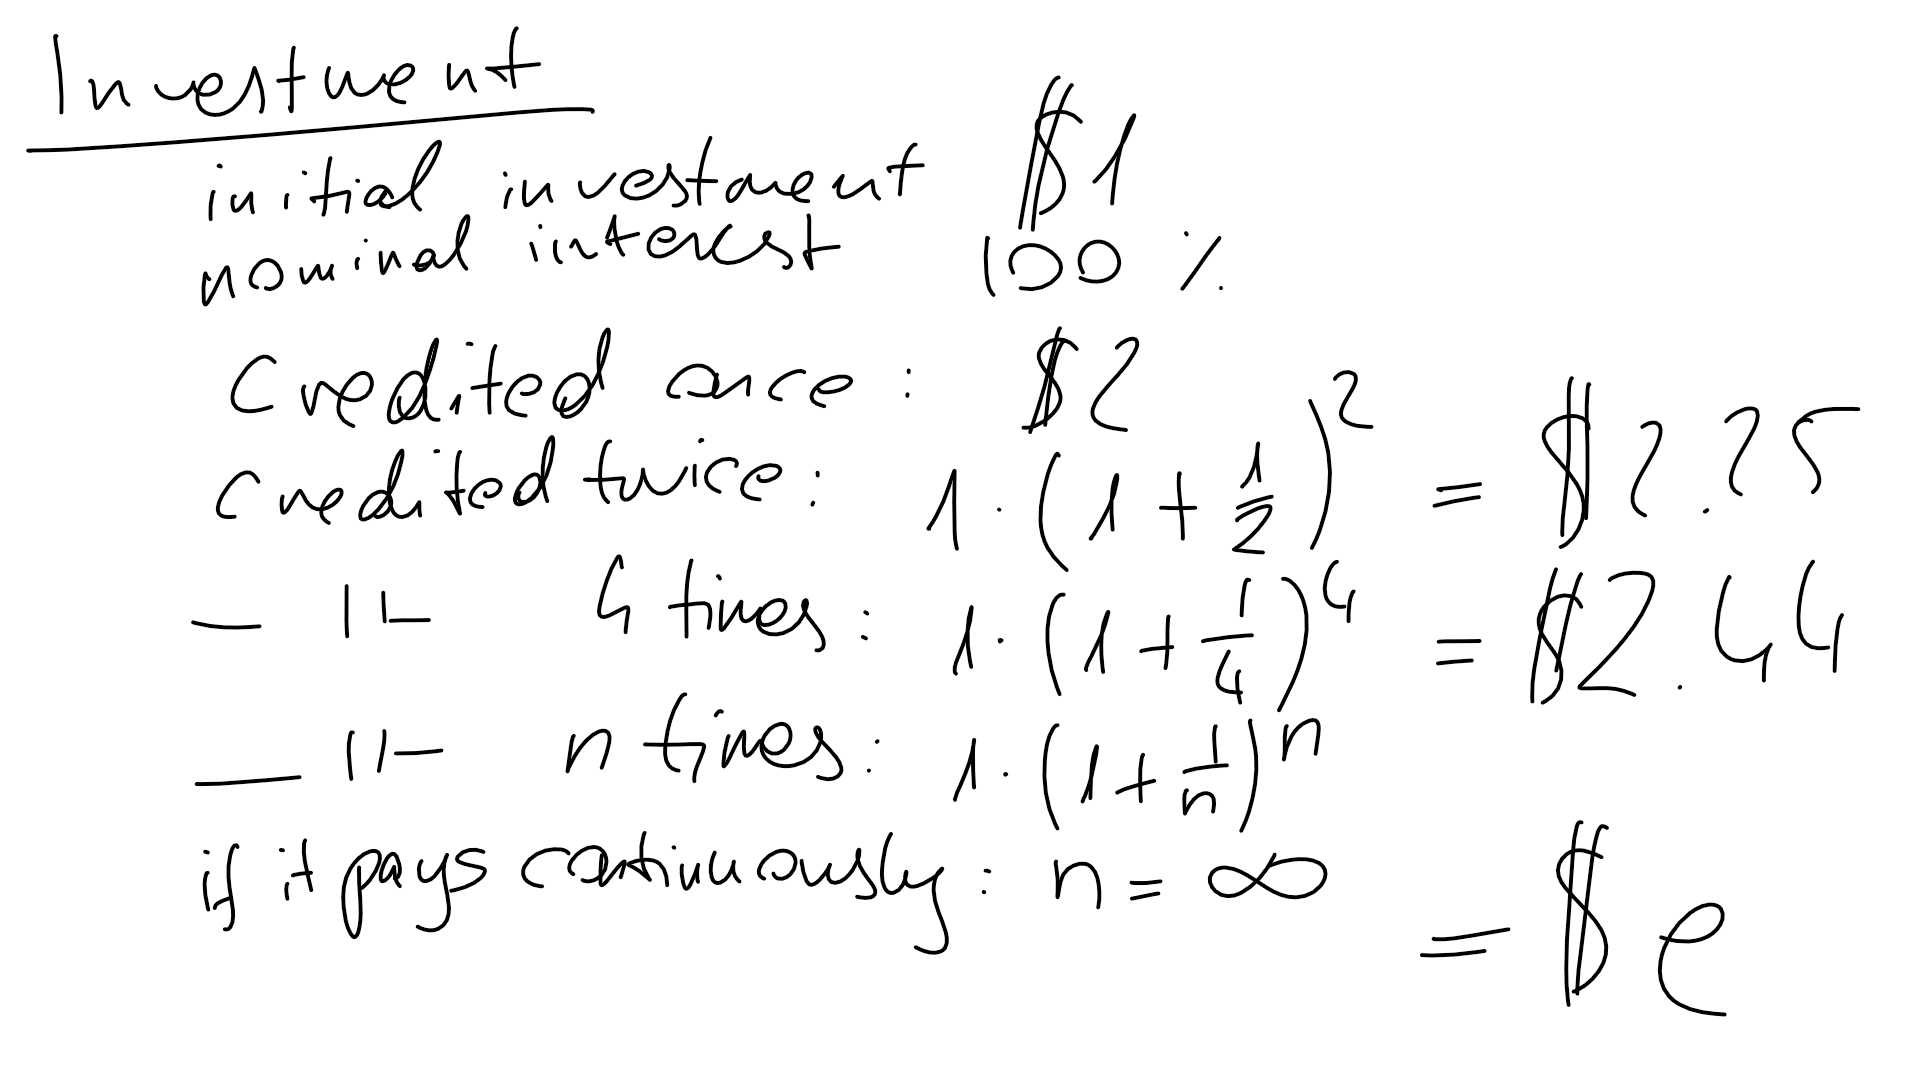 Investment
initial investment $1
nominal interest 100 %
Credited once: $2
Credited twice: 1·(1+1/2)^2 = $2.25
—||— 4 times: 1·(1+1/4)^4 = $2.44
—||— n times: 1·(1+1/n)^n
if it pays continuously: n = ∞
= $e